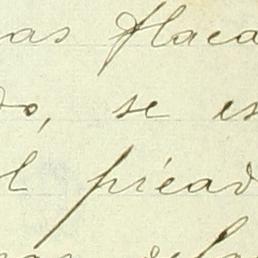 as flaca
do, se es
l piead